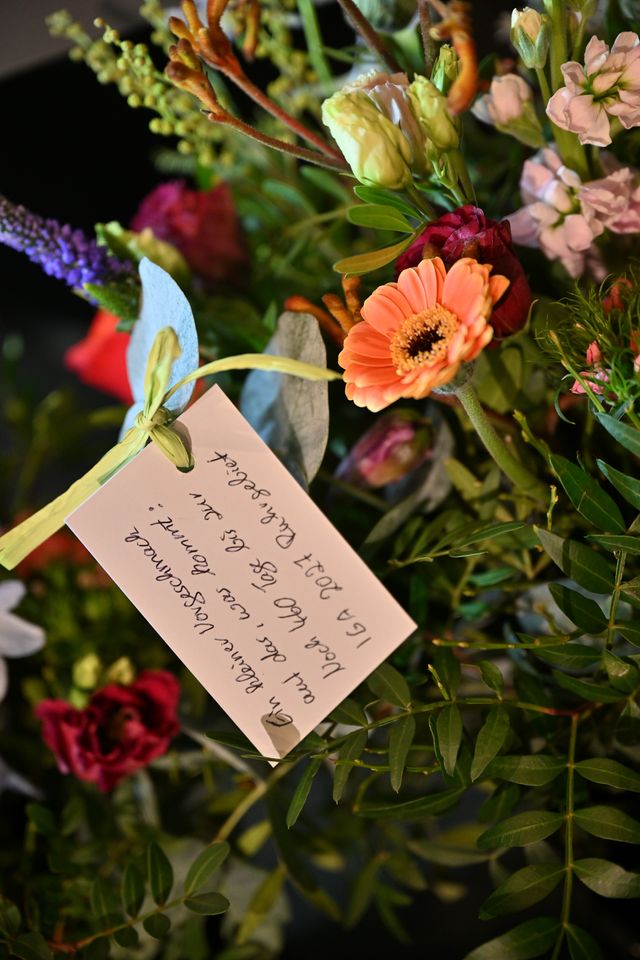 Ein kleiner Vorgeschmack
auf das, was kommt!
Noch 460 Tage bis zur
IGA 2027 Ruhrgebiet